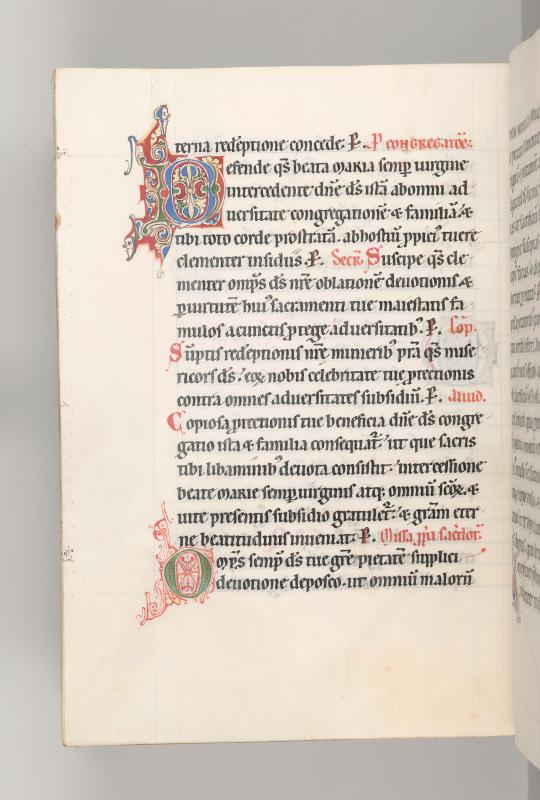 terna redēptione concede. P. P congregatōe.
Defende qs̄ beata maria semp uirgine
intercedente dn̄e ds̄ istā ab omni ad
uersitate congregationē & familiā. &
tibi toto corde prostratā. ab hostiū ꝓpici᷒ tuere
clementer insidiis. P. Secr̄. Suscipe qs̄ cle
menter omp̄s ds̄ nr̄e oblationē deuotionis &
ꝑ uirtutē hui᷒ sacramenti tue maiestatis fa
mulos a cunctis ꝓtege aduersitatib᷒. P. Cōp.
Sūptis redēptionis nr̄e munerib᷒ p̄ra qs̄ mise
ricors ds̄. eoꝝ nobis celebritate tue ꝓtectionis
contra omnes aduersitates subsidiū. P. Aliud.
Copiosa ꝓtectionis tue beneficia dn̄e ds̄ congre
gatio ista & familia consequat̄. ut que sacris
tibi libaminib᷒ deuota consistit. intercessione
beate marie semp uirginis atq; omniū sc̄oꝝ. &
uite presentis subsidio gratulet̄. & gr̄am eter
ne beatitudinis inueniat. P. Missa ꝓpa sacerdot̄.
Omp̄s semp̄ ds̄ tue gr̄e pietatē supplici
deuotione deposco. ut omniū malorū